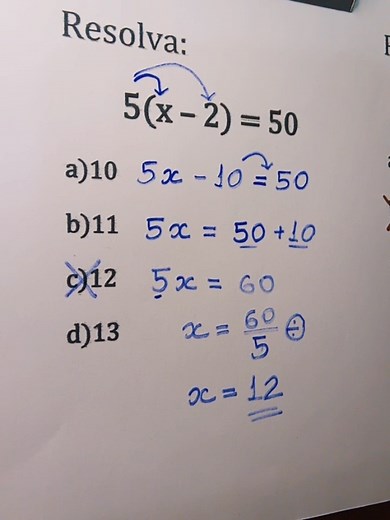 Resolva:
5(x – 2) = 50
a)10 5x - 10 = 50
b)11 5x = 50 + 10
c)12 5x = 60
d)13 x = 60/5 ÷
x = 12